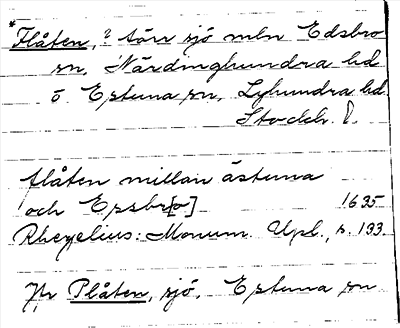 *Flåten, ? törr sjö mln Edsbro
sn, Närdinghundra hd
o Estuna sn, Lyhundra hd
Stockh. l.
flåten millan ästuna
och Epsbr[o] 1635
Rhezelius: Monum. Upl., s. 133.
Jfr Plåten, sjö, Estuna sn